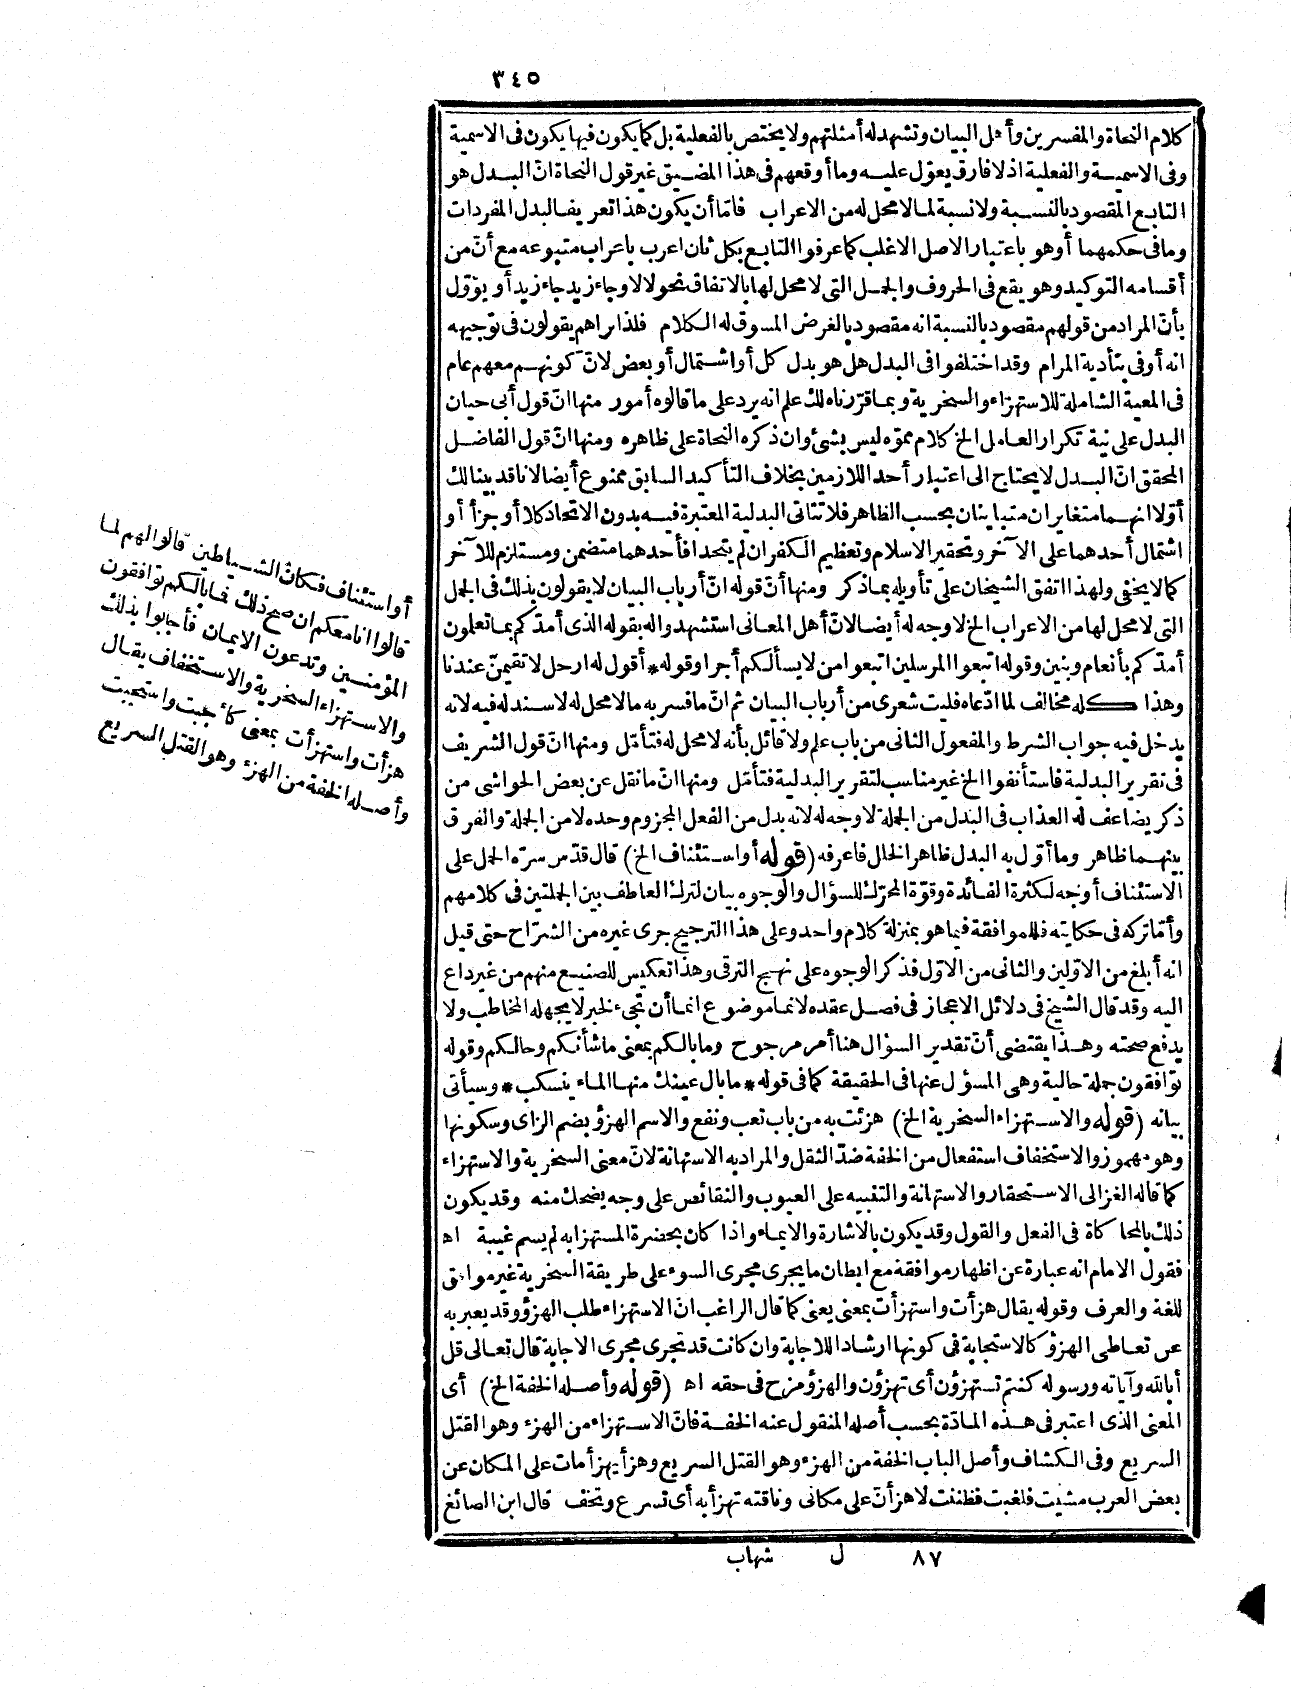 ٣٤٥
كلام النحاة والمفسرين وأهل البيان وتشهد له أمثلتهم ولا يختص بالفعلية بل كما يكون فيها يكون فى الاسمية
وفى الاسمية والفعلية اذ لا فارق يعوّل عليه وما أوقعهم فى هذا المضيق غير قول النحاة انّ البدل هو
التابع المقصود بالنسبة ولا نسبة لما لا محل له من الاعراب فامّا أن يكون هذا تعريف البدل المفردات
وما فى حكمهما أو هو باعتبار الاصل الاغلب كما عرفوا التابع بكل ثان اعرب باعراب متبوعه مع أنّ من
أقسامه التوكيد وهو يقع فى الحروف والجمل التى لا محل لها بالاتفاق نحو لا لا وجاء زيد جاء زيد أو يؤوّل
بأنّ المراد من قولهم مقصود بالنسبة انه مقصود بالغرض المسوق له الكلام فلذا براهم يقولون فى توجيهه
انه أوفى بتأدية المرام وقد اختلفوا فى البدل هل هو بدل كل أو اشتمال أو بعض لانّ كونهم معهم عام
فى المعية الشاملة للاستهزاء والسخرية وبما قرّرناه لك علم انه يرد على ما قالوه أمور منها انّ قول أبى حيان
البدل على نية تكرار العامل الخ كلام مموّه ليس بشئ وان ذكره النحاة على ظاهره ومنها انّ قول الفاضل
المحقق انّ البدل لا يحتاج الى اعتبار أحد اللازمين بخلاف التأكيد السابق ممنوع أيضا لانا قد بينا لك
أوّلا انهما متغايران متباينان بحسب الظاهر فلا تتاتى البدلية المعتبرة فيه بدون الاتحاد كلا أو جزأ أو
اشتمال أحدهما على الآخر وتحقير الاسلام وتعظيم الكفر ان لم يتحدا فأحدهما متضمن ومستلزم للآخر
كما لا يخفى ولهذا اتفق الشيخان على تأويله بما ذكر ومنها أنّ قوله انّ أرباب البيان لا يقولون بذلك فى الجمل
التى لا محل لها من الاعراب الخ لا وجه له أيضا لانّ أهل المعانى استشهدوا له بقوله الذى أمدّكم بما تعلمون
أمدّكم بأنعام وبنين وقوله اتبعوا المرسلين اتبعوا من لا يسألكم أجرا وقوله * أقول له ارحل لا تقيمنّ عندنا
وهذا كله مخالف لما ادّعاه فليت شعرى من أرباب البيان ثم انّ ما فسر به ما لا محل له لا سند له فيه لانه
يدخل فيه جواب الشرط والمفعول الثانى من باب علم ولا قائل بأنه لا محل له فتأمّل ومنها انّ قول الشريف
فى تقرير البدلية فاستأنفوا الخ غير مناسب لتقرير البدلية فتأمّل ومنها انّ ما نقل عن بعض الحواشى من
ذكر يضاعف له العذاب فى البدل من الجملة لا وجه له لانه بدل من الفعل المجزوم وحده لا من الجملة والفرق
بينهما ظاهر وما أوّل به البدل ظاهر الحال فاعرفه (قوله أو استئناف الخ) قال قدّس سرّه الحمل على
الاستئناف أوجه لكثرة الفائدة وقوّة المحرّك للسؤال والوجوه بيان لترك العاطف بين الجملتين فى كلامهم
وأمّا تركه فى حكايته فللموافقة فيما هو بمنزلة كلام واحد وعلى هذا الترجيح جرى غيره من الشرّاح حتى قيل
انه أبلغ من الاوّلين والثانى من الاوّل فذكر الوجوه على نهج الترقى وهذا تعكيس للصنيع منهم من غير داع
اليه وقد قال الشيخ فى دلائل الاعجاز فى فصل عقده لانما موضوع انما أن تجىء لخبر لا يجهله المخاطب ولا
يدفع صحته وهذا يقتضى أنّ تقدير السؤال هنا أمر مرجوح وما بالكم بمعنى ما شأنكم وحالكم وقوله
توافقون جملة حالية وهى المسؤل عنها فى الحقيقة كما فى قوله * ما بال عينك منها الماء ينسكب * وسيأتى
بيانه (قوله والاستهزاء السخرية الخ) هزئت به من باب تعب ونفع والاسم الهزؤ بضم الزاى وسكونها
وهو مهموز والاستخفاف استفعال من الخفة ضدّ الثقل والمراد به الاستهانة لانّ معنى السخرية والاستهزاء
كما قاله الغزالى الاستحقار والاستهانة والتنبيه على العيوب والنقائص على وجه يضحك منه وقد يكون
ذلك بالمحاكاة فى الفعل والقول وقد يكون بالاشارة والايماء واذا كان بحضرة المستهزا به لم يسم غيبة اه
فقول الامام انه عبارة عن اظهار موافقة مع ابطان ما يجرى مجرى السوء على طريقة السخرية غير موافق
للغة والعرف وقوله يقال هزأت واستهزأت بمعنى يعنى كما قال الراغب انّ الاستهزاء طلب الهزؤ وقد يعبر به
عن تعاطى الهزؤ كالاستجابة فى كونها ارشادا للاجابة وان كانت قد تجرى مجرى الاجابة قال تعالى قل
أبالله وآياته ورسوله كنتم تستهزؤن أى تهزؤن والهزؤ مزح فى حقه اه (قوله وأصله الخفة الخ) أى
المعنى الذى اعتبر فى هذه المادّة بحسب أصله المنقول عنه الخفة فانّ الاستهزاء من الهزء وهو القتل
السريع وفى الكشاف وأصل الباب الخفة من الهزء وهو القتل السريع وهزأ يهزأ مات على المكان عن
بعض العرب مشيت فلغبت فظننت لاهزأنّ على مكانى وناقته تهزأ به أى تسرع وتخف قال ابن الصائغ
أو استئناف فكانّ الشياطين قالوا لهم لما
قالوا انا معكم ان صح ذلك فما بالكم توافقون
المؤمنين وتدعون الايمان فأجابوا بذلك
والاستهزاء السخرية والاستخفاف يقال
هزأت واستهزأت بمعنى كأجبت واستجبت
وأصله الخفة من الهزء وهو القتل السريع
٨٧ ل شهاب